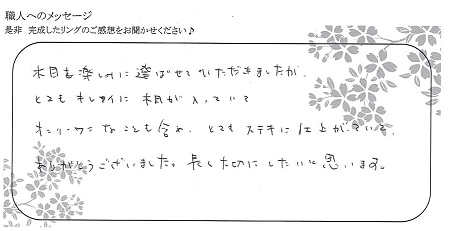 職人へのメッセージ
是非 完成したリングのご感想をお聞かせください♪
木目を楽しみに選ばせていただきましたが、
とてもキレイに木目が入っていて
オンリーワンなことも含め、とてもステキに仕上がっていて、
ありがとうございました。長く大切にしたいと思います。